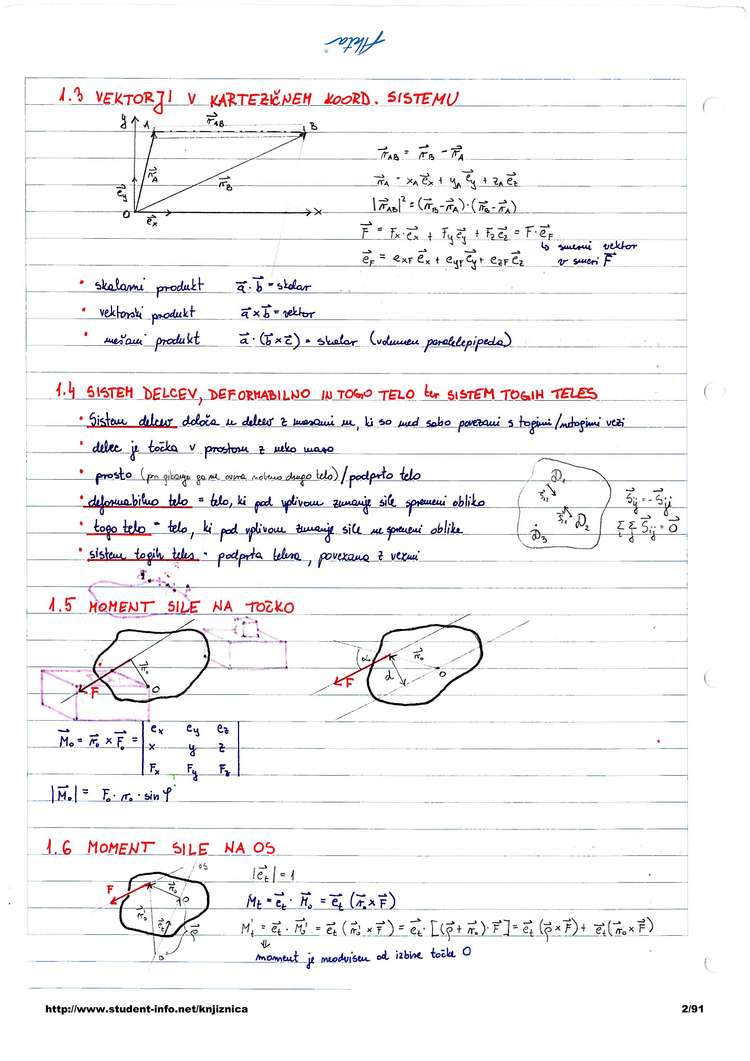 Meta
1.3 VEKTORJI V KARTEZIČNEM KOORD. SISTEMU
y A r⃗_AB B
r⃗_A r⃗_B
e⃗_y
O e⃗_x x
r⃗_AB = r⃗_B - r⃗_A
r⃗_A = x_A e⃗_x + y_A e⃗_y + z_A e⃗_z
|r⃗_AB|² = (r⃗_B - r⃗_A)·(r⃗_B - r⃗_A)
F⃗ = F_x·e⃗_x + F_y e⃗_y + F_z e⃗_z = F·e⃗_F
↳ smerni vektor
e⃗_F = e_xF e⃗_x + e_yF e⃗_y + e_zF e⃗_z v smeri F⃗
• skalarni produkt a⃗·b⃗ = skalar
• vektorski produkt a⃗×b⃗ = vektor
• mešani produkt a⃗·(b⃗×c⃗) = skalar (volumen paralelepipeda)
1.4 SISTEM DELCEV, DEFORMABILNO IN TOGO TELO ter SISTEM TOGIH TELES
• Sistem delcev določa n delcev z masami m, ki so med sabo povezani s togimi/netogimi vezi
• delec je točka v prostoru z neko maso
• prosto (pri gibanju ga ne ovira nobeno drugo telo)/podprto telo
• deformabilno telo = telo, ki pod vplivom zunanje sile spremeni obliko
• togo telo = telo, ki pod vplivom zunanje sile ne spremeni oblike
• sistem togih teles - podprta telesa, povezana z vezmi
D₁
D₂
D₃
S⃗_ij = -S⃗_ji
Σ_i Σ_j S⃗_ij = 0⃗
1.5 MOMENT SILE NA TOČKO
F r⃗₀ O
F α K r⃗₀ d O
M⃗₀ = r⃗₀ × F⃗₀ = | e_x e_y e_z |
| x y z |
| F_x F_y F_z |
|M⃗₀| = F₀ · r₀ · sin φ
1.6 MOMENT SILE NA OS
os
F K r⃗₀ O
r⃗₀' e⃗_t ρ⃗
O'
|e⃗_t| = 1
M_t = e⃗_t · M⃗₀ = e⃗_t (r⃗₀ × F⃗)
M_t' = e⃗_t · M⃗₀' = e⃗_t (r⃗₀' × F⃗) = e⃗_t · [(ρ⃗ + r⃗₀)·F⃗] = e⃗_t (ρ⃗ × F⃗) + e⃗_t (r⃗₀ × F⃗)
⇓
moment je neodvisen od izbire točke O
http://www.student-info.net/knjiznica 2/91